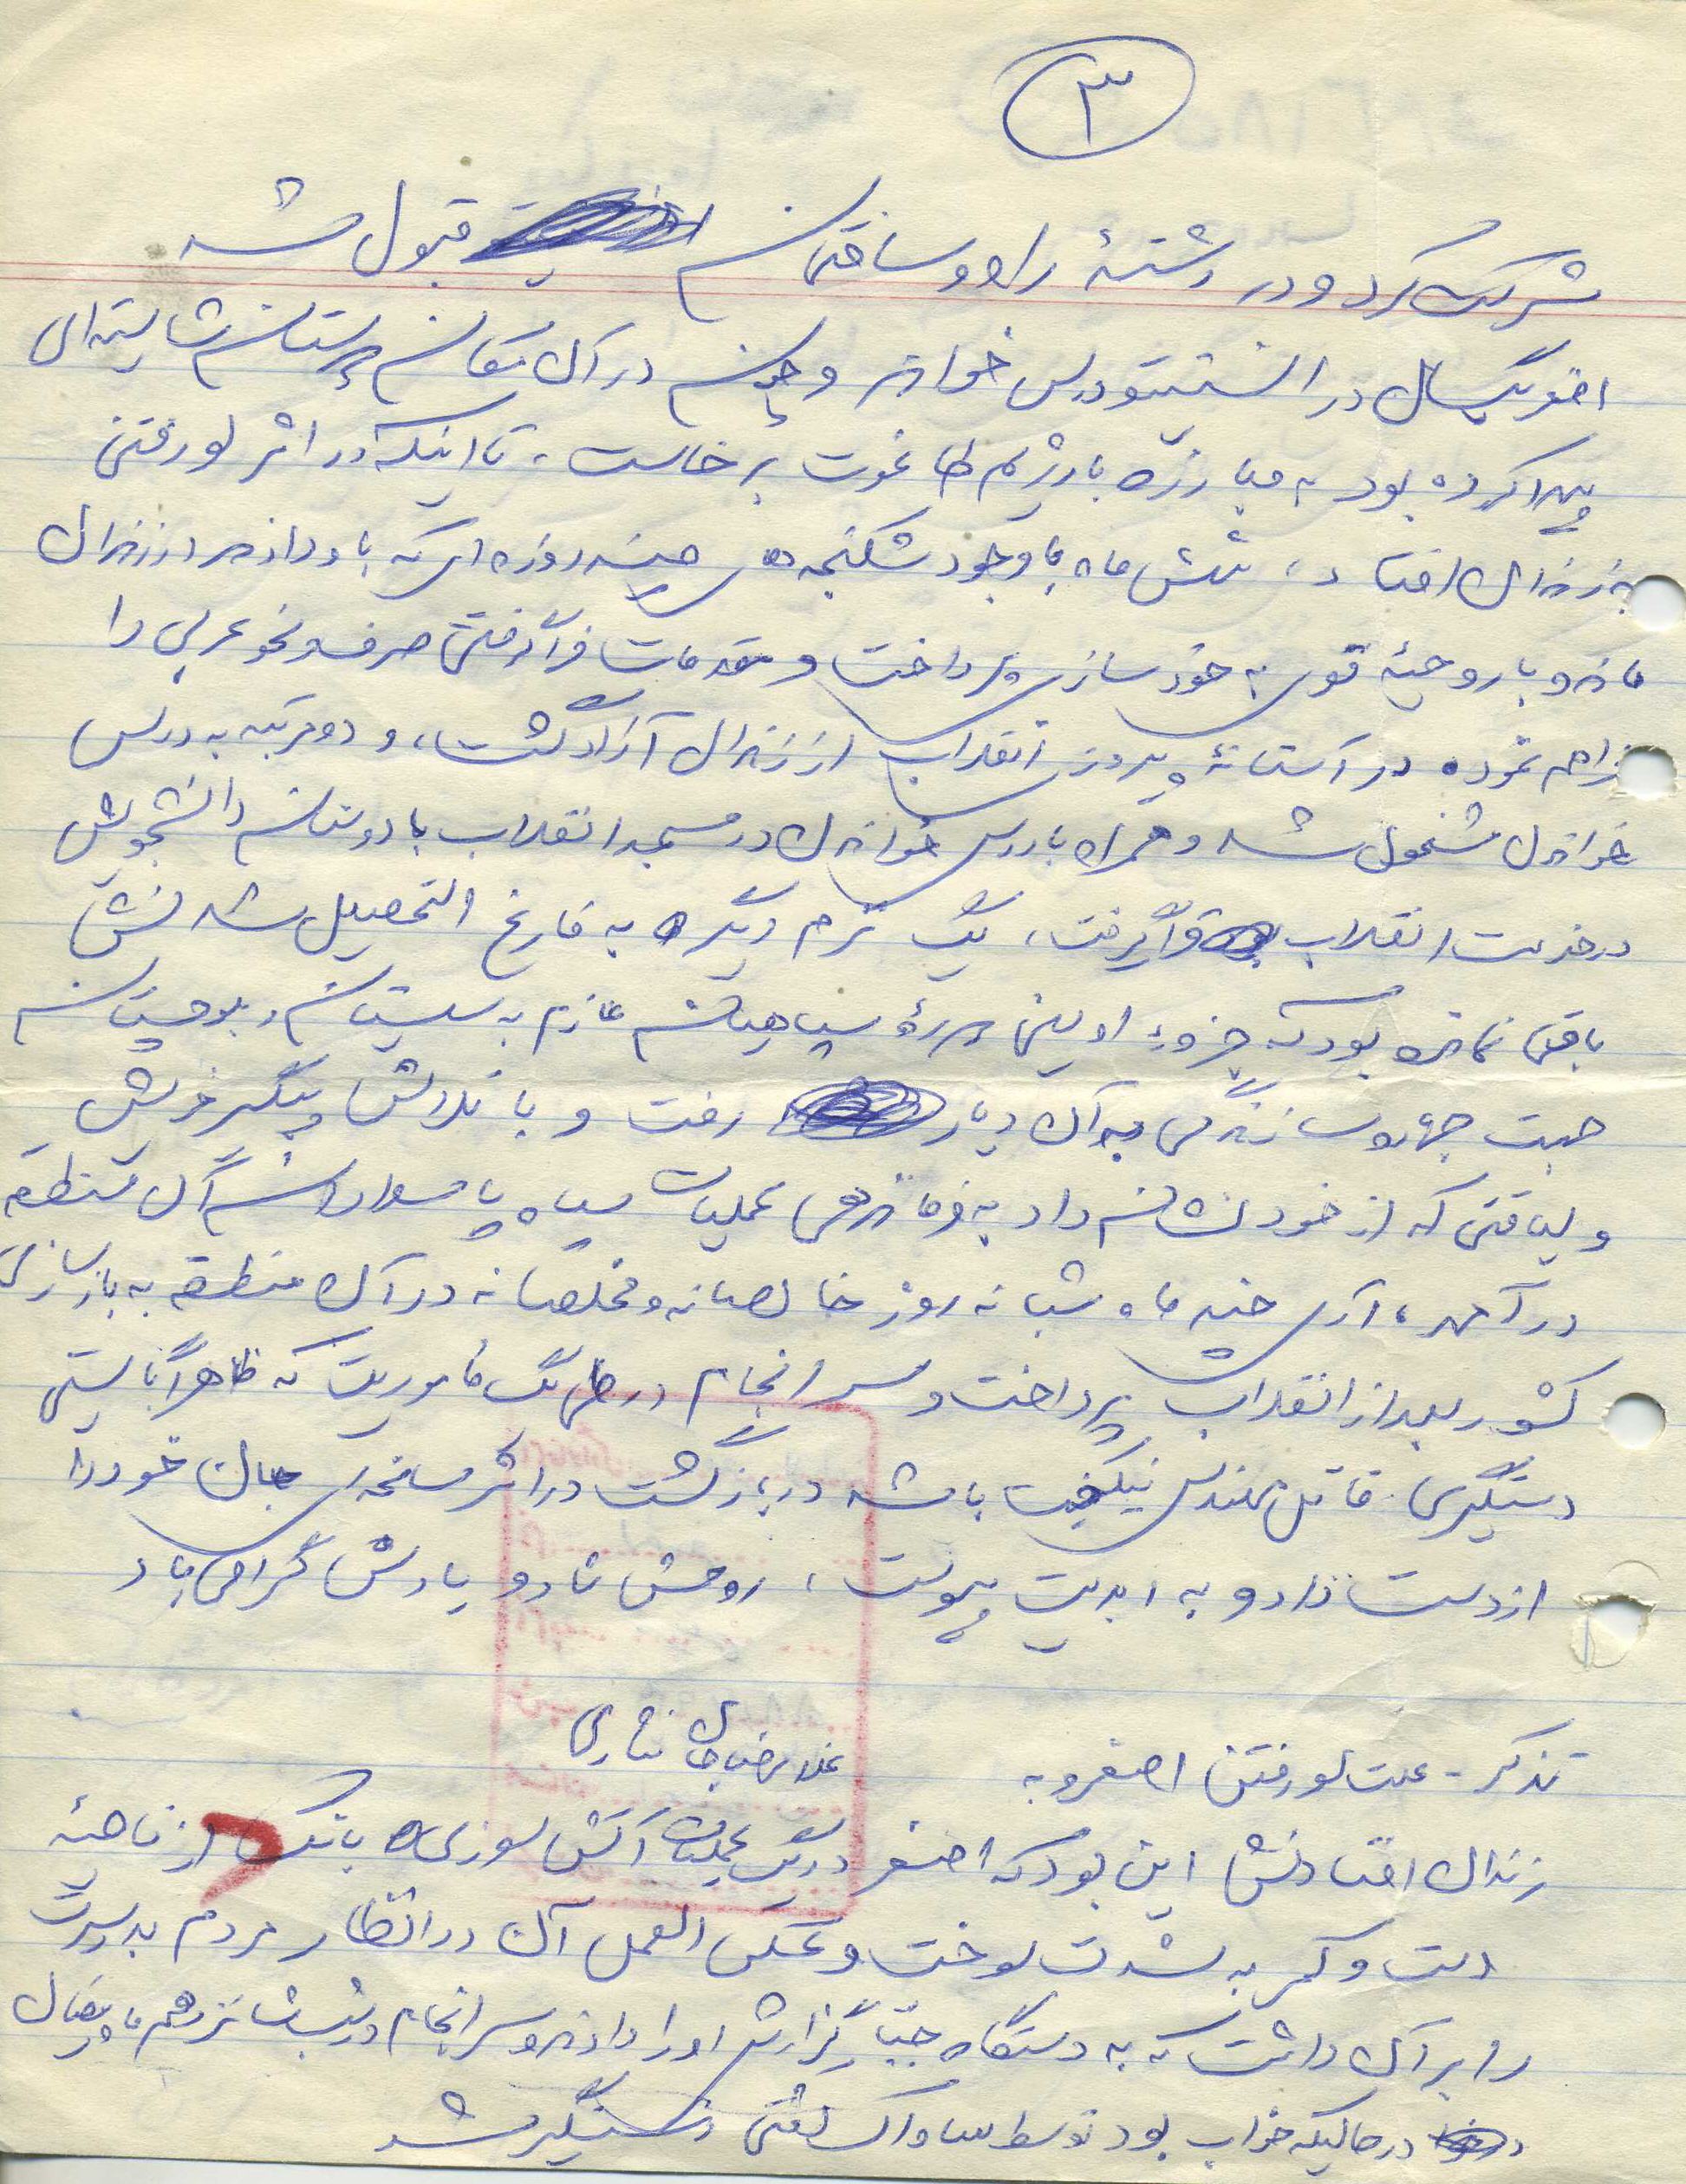 ۳
شرکت کرد و در رشتهٔ راه و ساختمان قبول شد
اصغر یکسال در انستیتو درس خواند و چون در آن مکان دوستان شایسته‌ای
پیدا کرده بود به مبارزه با رژیم طاغوت برخاست، تا اینکه در اثر لو رفتن
به زندان افتاد، شش ماه با وجود شکنجه‌های چند روزه‌ای که باو دادند در زندان
ماند و با روحیهٔ قوی به خودسازی پرداخت و مقدمات فراگرفتن صرف و نحو عربی را
فراهم نموده در آستانهٔ پیروزی انقلاب از زندان آزاد گشت، و دو مرتبه به درس
خواندن مشغول شد و همراه با درس خواندن در مسجد انقلاب با دوستان دانشجویش
در خدمت انقلاب قرار گرفت، یک ترم دیگر به فارغ التحصیل شدنش
باقی نمانده بود که جزوء اولین دورهٔ سپاهیان عازم به سیستان و بلوچستان
جهت جهاد و سازندگی به آن دیار رفت و با تلاش پیگیر خویش
و لیاقتی که از خود نشان داد به فرماندهی عملیات سپاه پاسداران آن منطقه
در آمد، آری چند ماه شبانه روز خالصانه و مخلصانه در آن منطقه به بازسازی
کشور بعد از انقلاب پرداخت و سرانجام در طی یک ماموریت که ظاهراً بایستی
دستگیری قاتل مهندس نیکبخت باشد در بازگشت در اثر سانحه‌ای جان خود را
از دست داد و به ابدیت پیوست، روحش شاد و یادش گرامی باد
غلامرضا جان نثاری
تذکر - علت لو رفتن اصغر و به
زندان افتادنش این بود که اصغر در یک عملیات آتش سوزی بانک از ناحیهٔ
دست و کمر به شدت سوخت و عکس العمل آن در انظار مردم بد سیرت
را بر آن داشت که به دستگاه جبّار گزارش او را دادند و سرانجام در شب شانزدهم ماه رمضان
در حالیکه خواب بود توسط ساواک لعنتی دستگیر شد